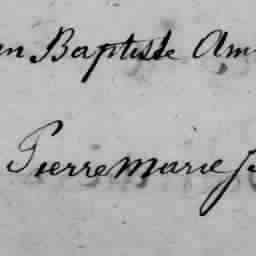 n Baptiste Am
Pierre marie